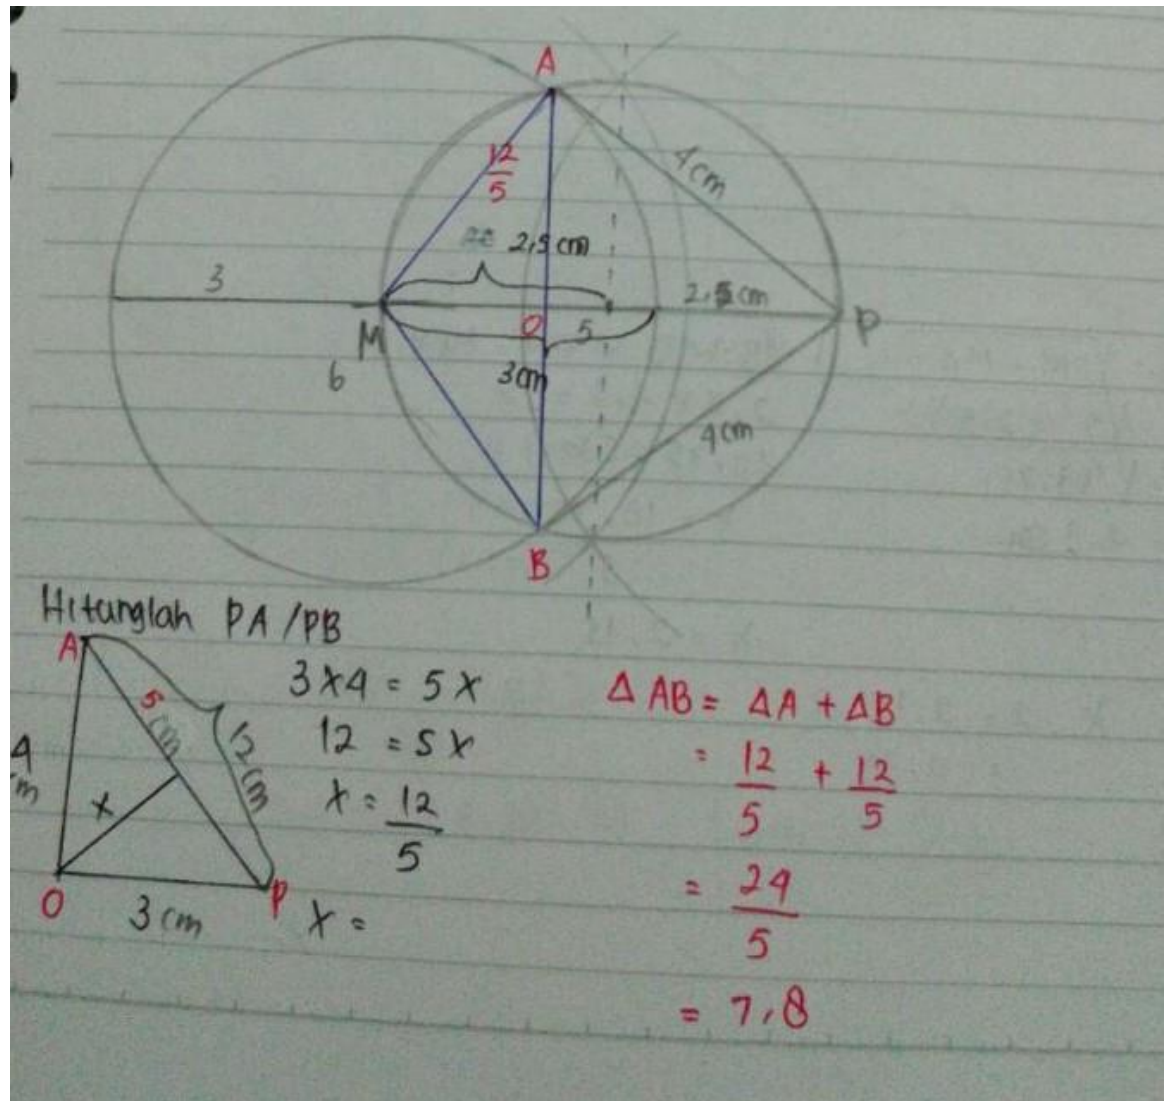 A
12
5
4 cm
2,5 cm
3
2,5 cm
M
O
5
P
6
3 cm
4 cm
B
Hitunglah PA/PB
A
5 cm
12 cm
4
cm
x
O
3 cm
P
3 x 4 = 5x
12 = 5x
x = 12
5
x =
Δ AB = ΔA + ΔB
= 12 + 12
5 5
= 24
5
= 7,8